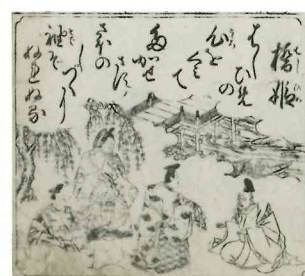 橋姫
はしひめの
心をくみて
たかせ
さす
さほの
しづくに
袖ぞ
ぬれぬる